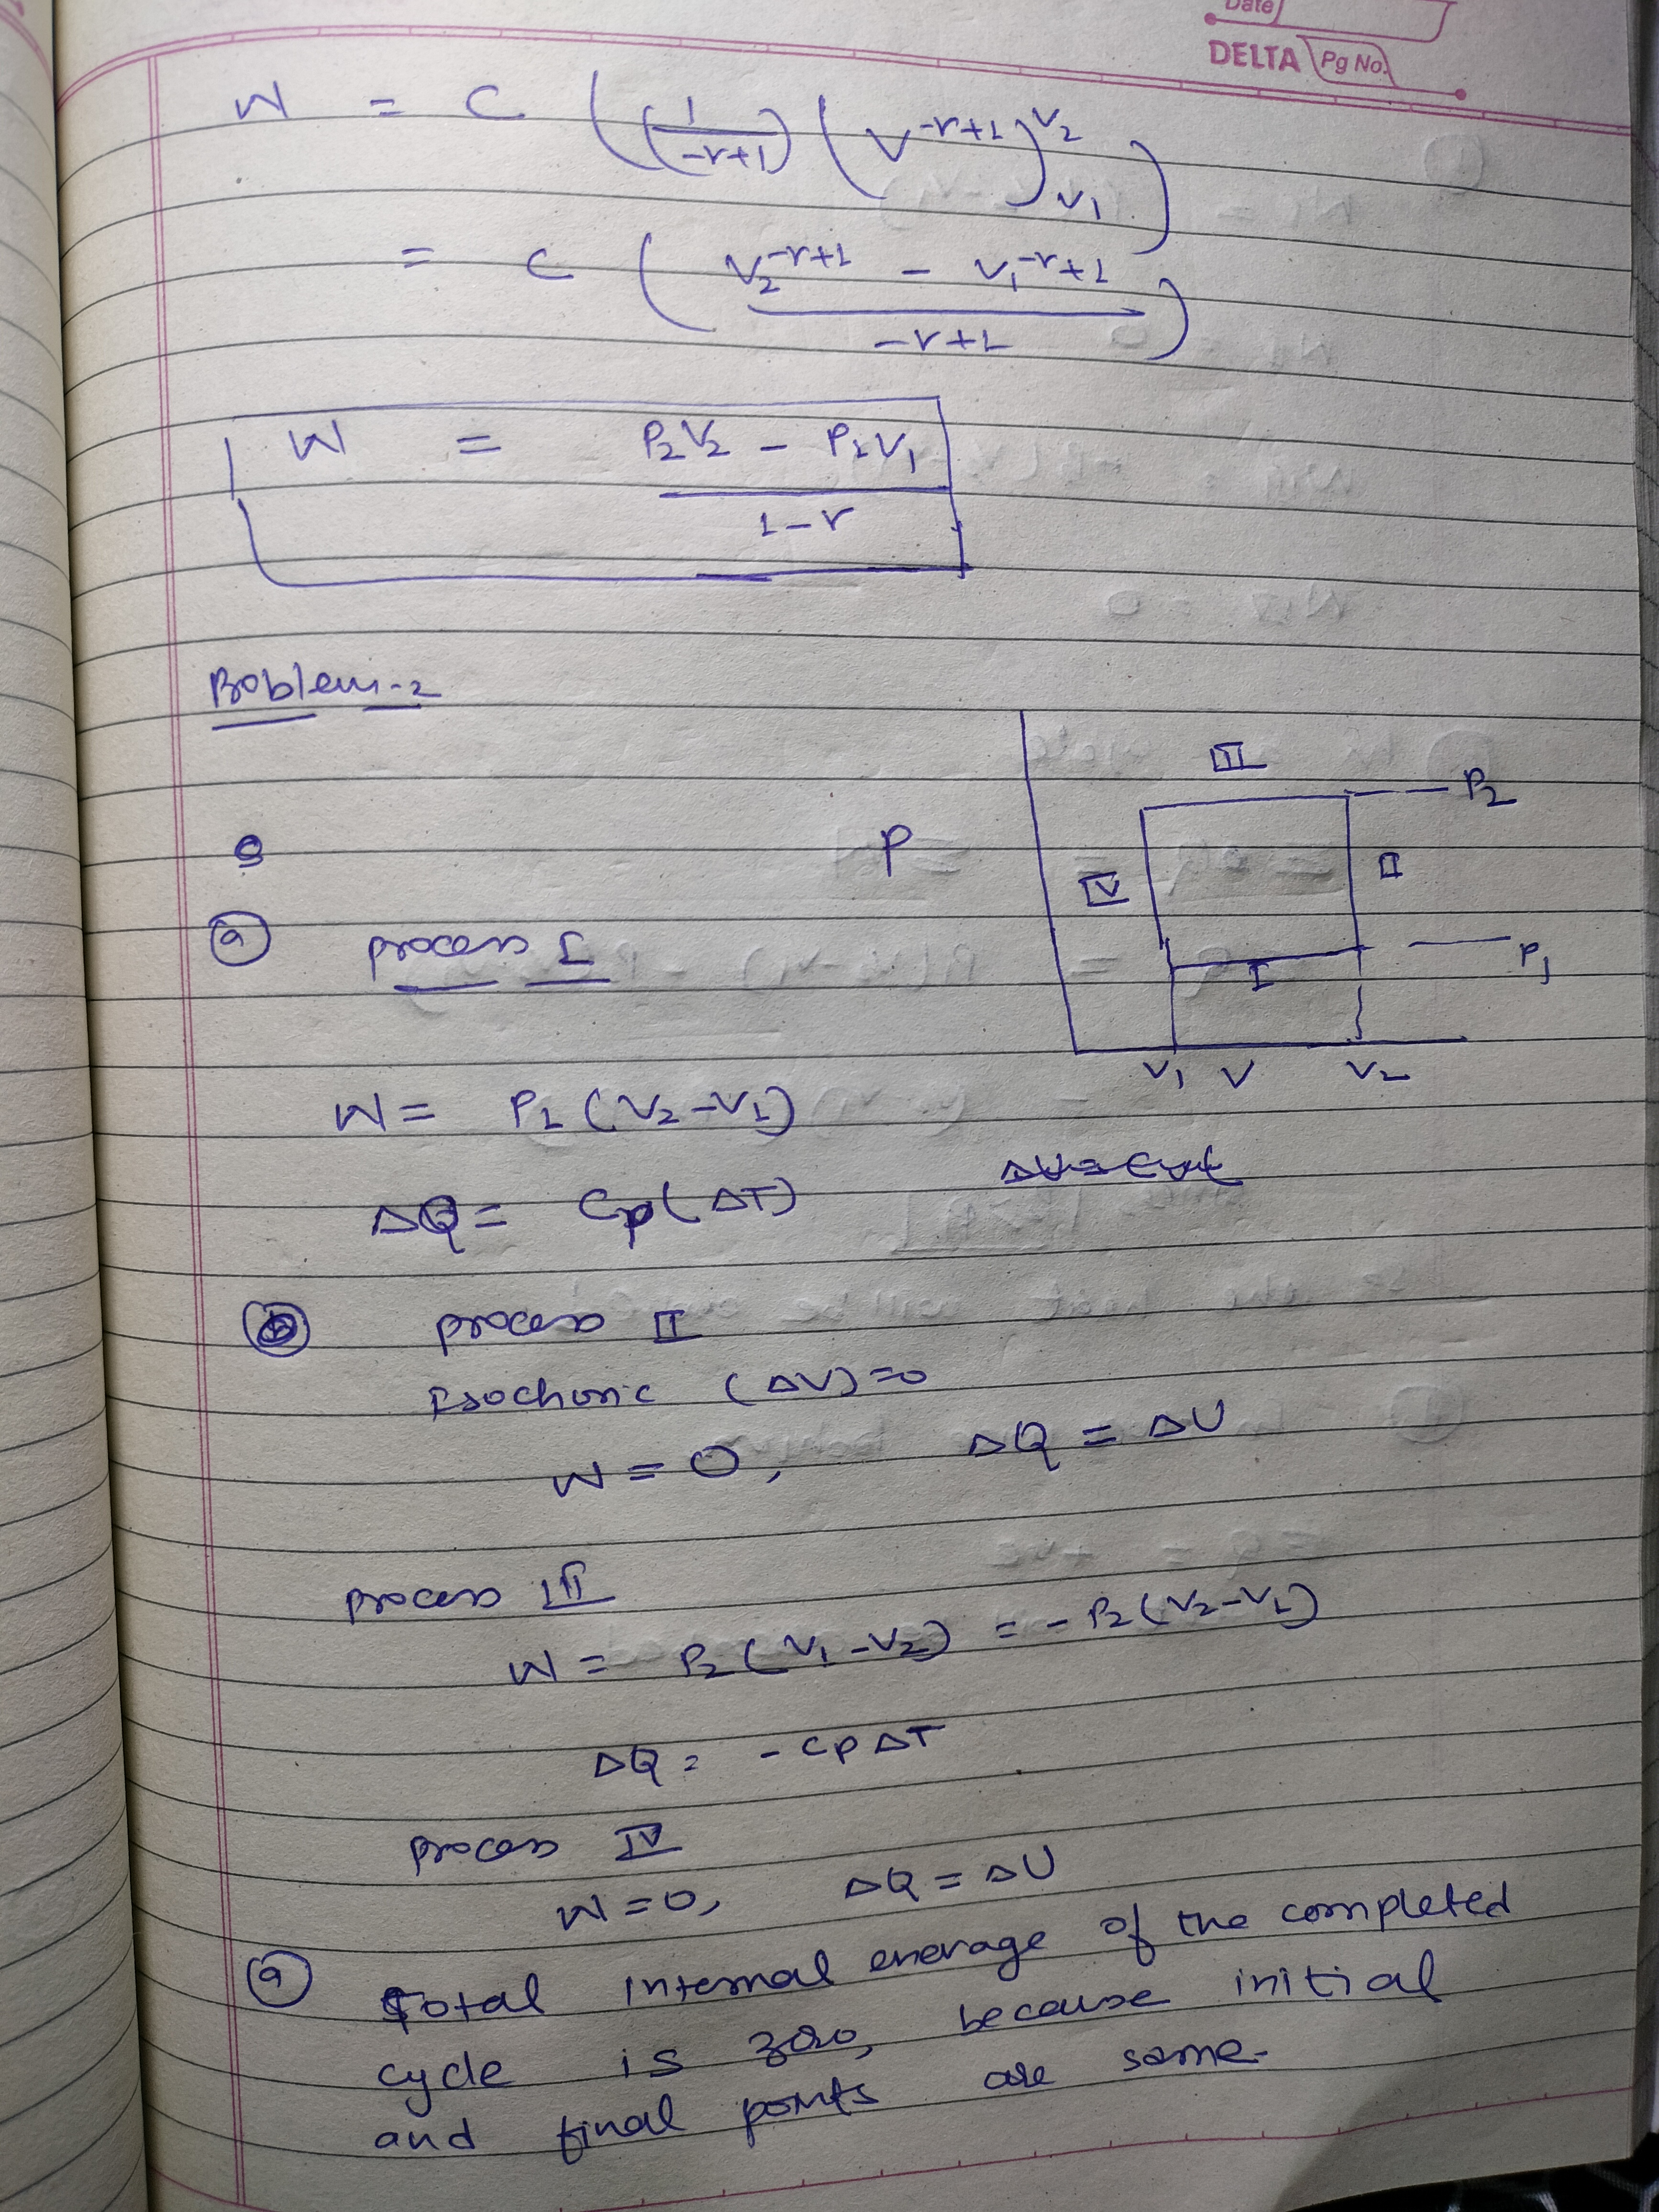 Date
DELTA Pg No.
W = C ((1/-r+1) (V^-r+1)^V2 _V1)
= C (V2^-r+1 - V1^-r+1 / -r+1)
W = P2V2 - P1V1 / 1-r
Problem-2
III
P2
P
IV
II
I
P1
V1 V V2
(a) process I
W = P1 (V2-V1)
ΔQ = Cp(ΔT)
process II
Isochoric (ΔV)=0
W = 0, ΔQ = ΔU
process III
W = P2 (V1-V2) = -P2 (V2-V1)
ΔQ = -CpΔT
process IV
W=0, ΔQ = ΔU
(a) Total internal enerage of the completed
cycle is zero, because initial
and final points are same.